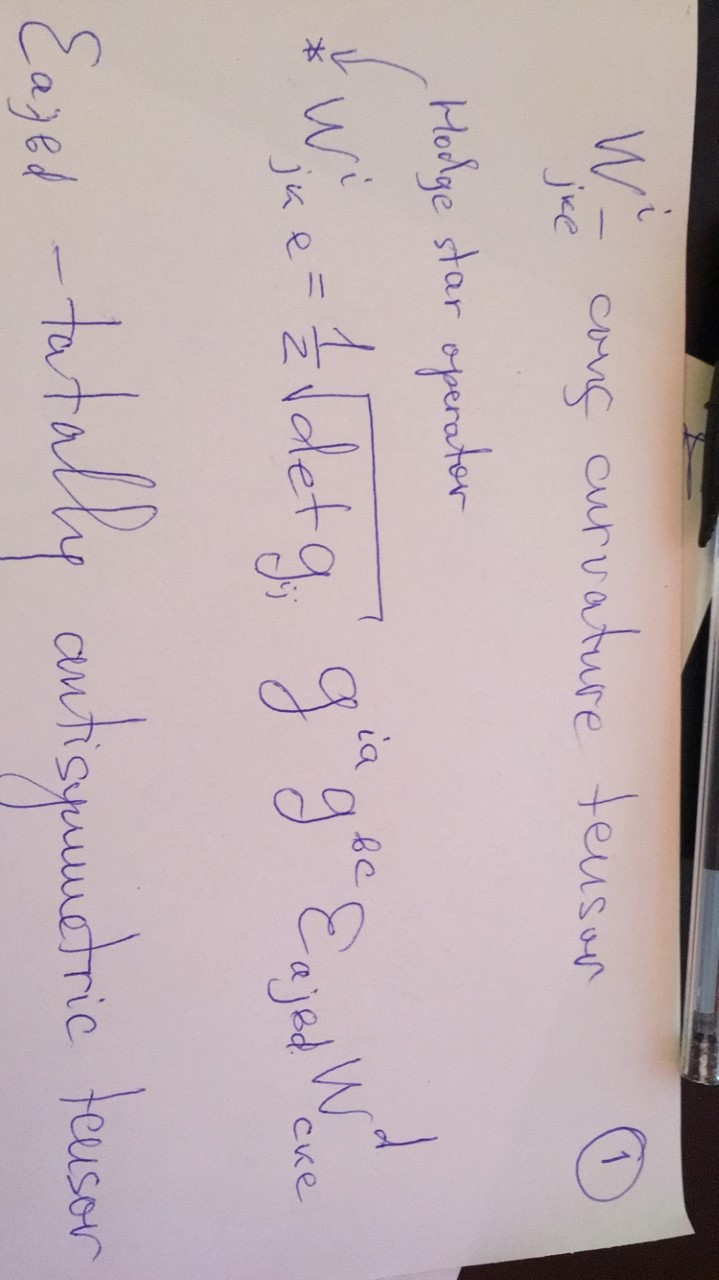 W^i_{jke} - conf curvature tensor ①
Hodge star operator
* W^i_{jke} = \frac{1}{2} \sqrt{det g_{ij}} g^{ia} g^{bc} ε_{ajbd} W^d_{cke}
ε_{ajbd} - tatally antisymmetric tensor